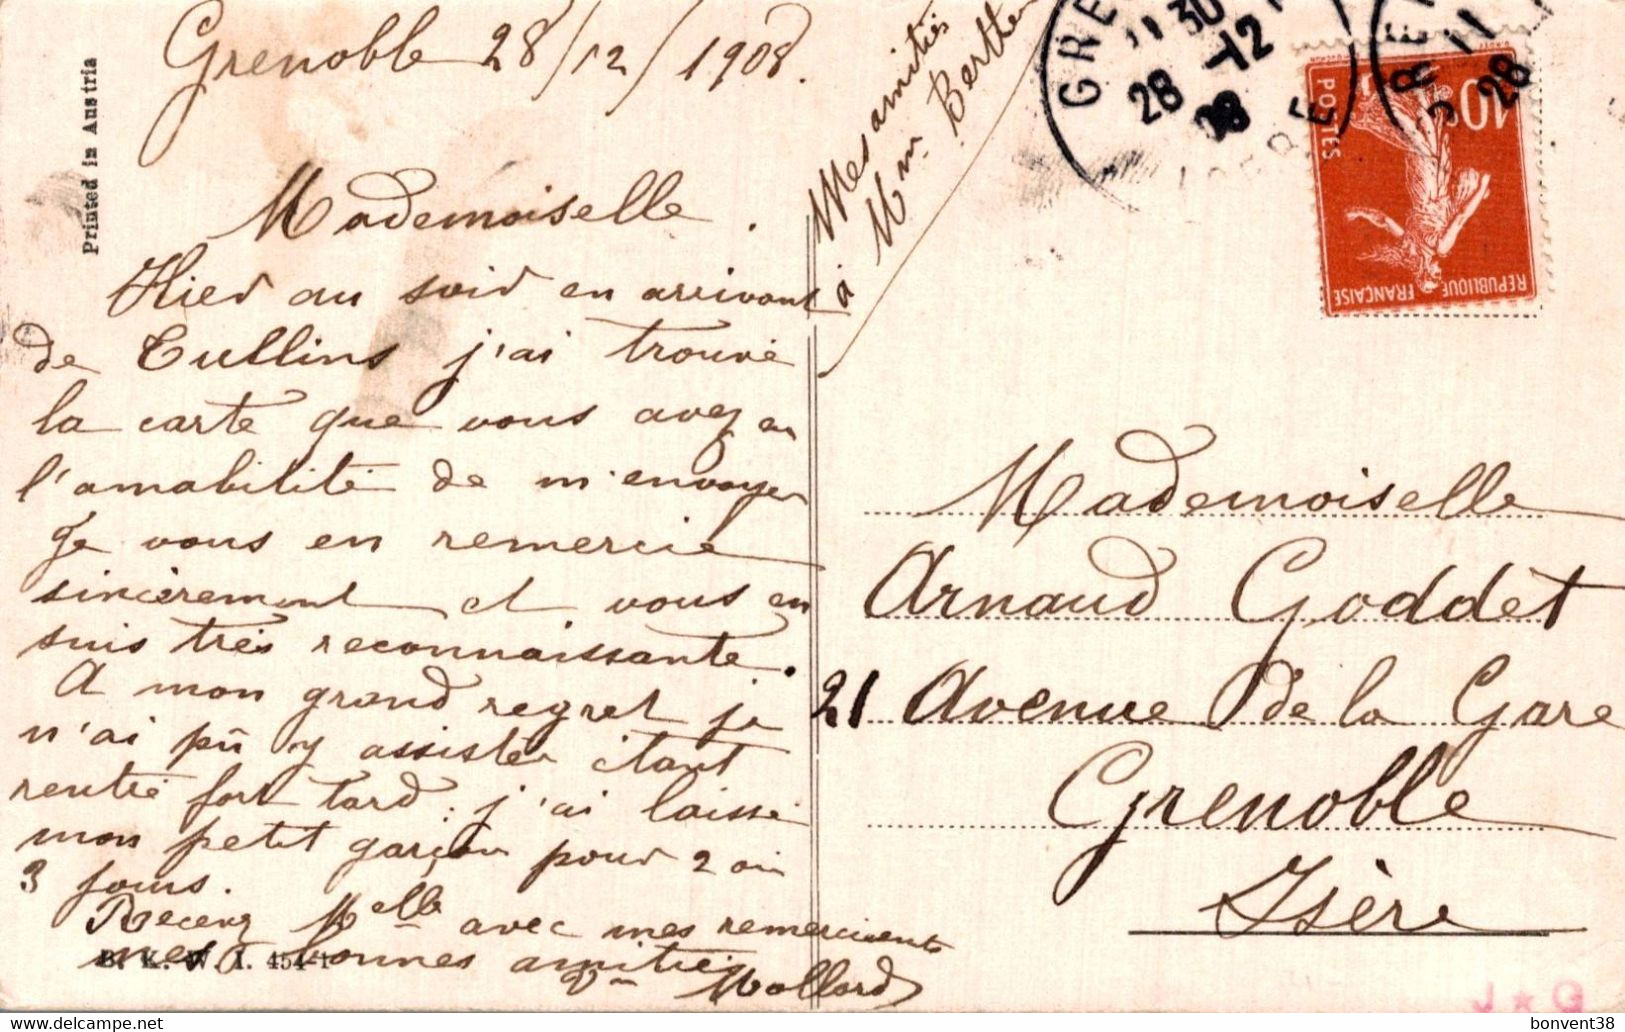 Grenoble 28/12/1908.
Mademoiselle.
Hier au soir en arrivant
de Tullins j'ai trouvé
la carte que vous avez eu
l'amabilité de m'envoyer
Je vous en remercie
sincèrement et vous en
suis très reconnaissante.
A mon grand regret je
n'ai pû y assister étant
rentré fort tard. j'ai laissé
mon petit garçon pour 2 ou
3 jours.
Recevez Melle avec mes remerciements
mes bonnes amitiés
Vve Mollard
Mes amitiés
à Mm. Berthe
Printed in Austria
B. K. W. I. 454-1
GRE
11 30
28 -12
08
ISERE
11
28
10c
POSTES
REPUBLIQUE FRANÇAISE
Mademoiselle
Arnaud Goddet
21 Avenue de la Gare
Grenoble
Isère
J★G
bonvent38